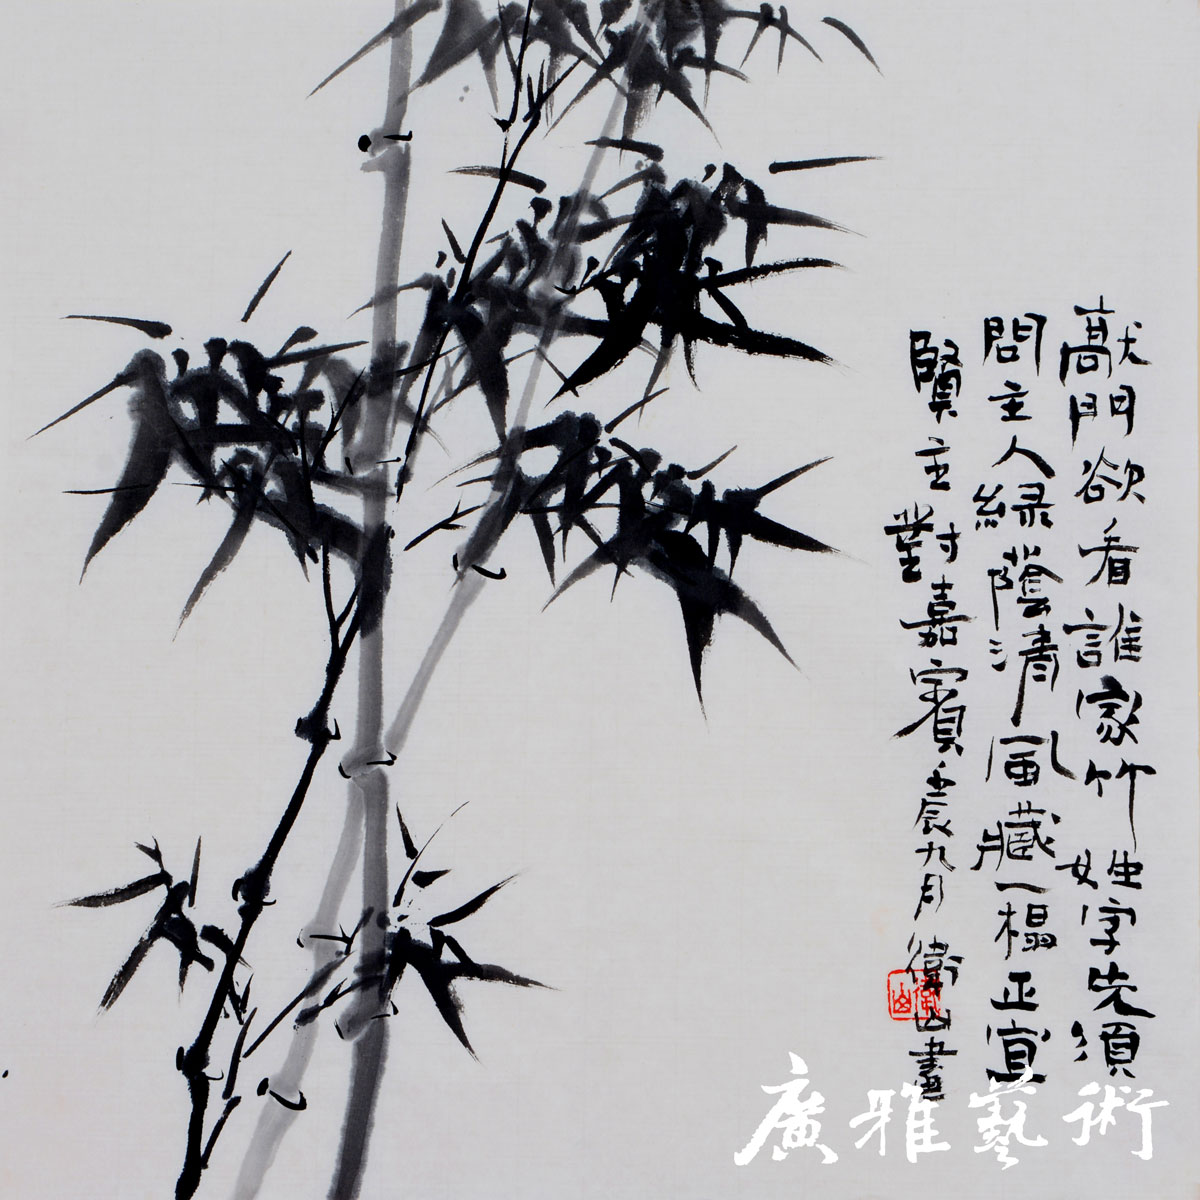 敲門欲看誰家竹姓字先須
問主人緑蔭清風藏一榻正宜
賢主對嘉賓壬辰九月衛山畫
衛山
廣雅藝術